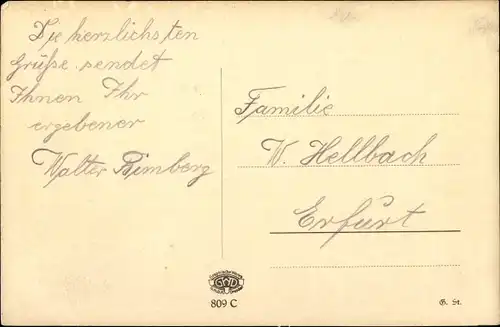 Die herzlichsten
Grüße sendet
Ihnen Ihr
ergebener
Walter Bimberg
Familie
W. Hellbach
Erfurt
809 C
G. St.